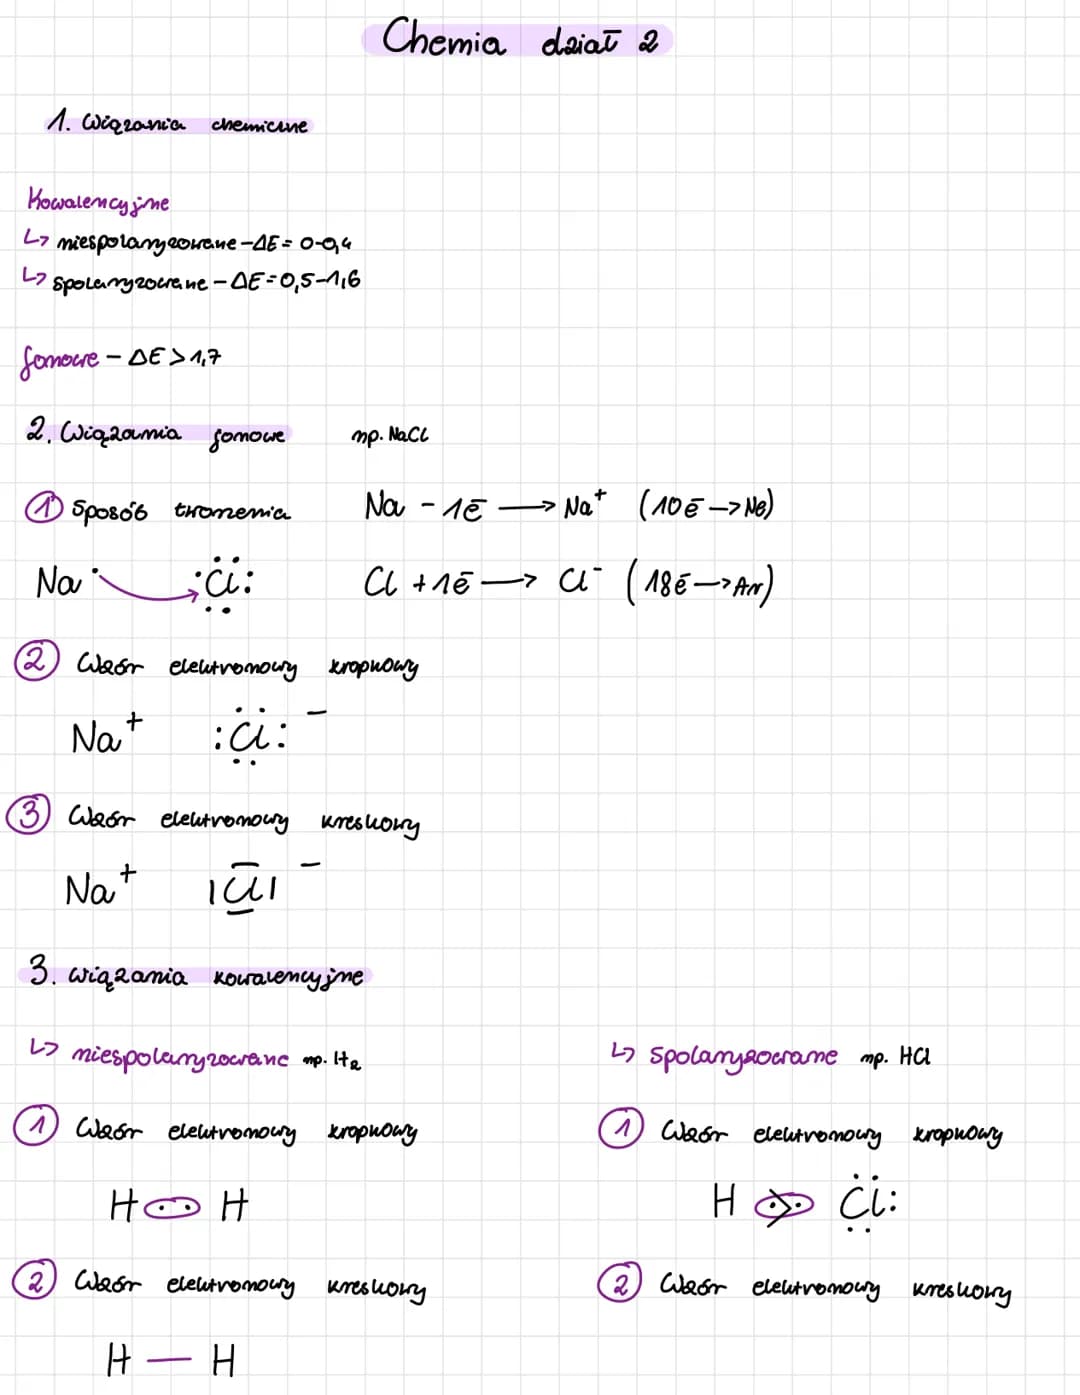 Chemia dział 2
1. Wiązania chemiczne
Kowalencyjne
↳ niespolaryzowane - ΔE = 0-0,4
↳ spolaryzowane - ΔE = 0,5-1,6
jonowe - ΔE > 1,7
2. Wiązania jonowe np. NaCl
① Sposób tworzenia Na - 1ē ⟶ Na⁺ (10ē → Ne)
Na· ·Cl: Cl + 1ē ⟶ Cl⁻ (18ē → Ar)
② Wzór elektronowy kropkowy
Na⁺ :Cl:⁻
③ Wzór elektronowy kreskowy
Na⁺ |Cl|⁻
3. Wiązania kowalencyjne
↳ niespolaryzowane np. H₂
① Wzór elektronowy kropkowy
H ·· H
② Wzór elektronowy kreskowy
H — H
↳ spolaryzowane np. HCl
① Wzór elektronowy kropkowy
H ·> · Cl:
② Wzór elektronowy kreskowy